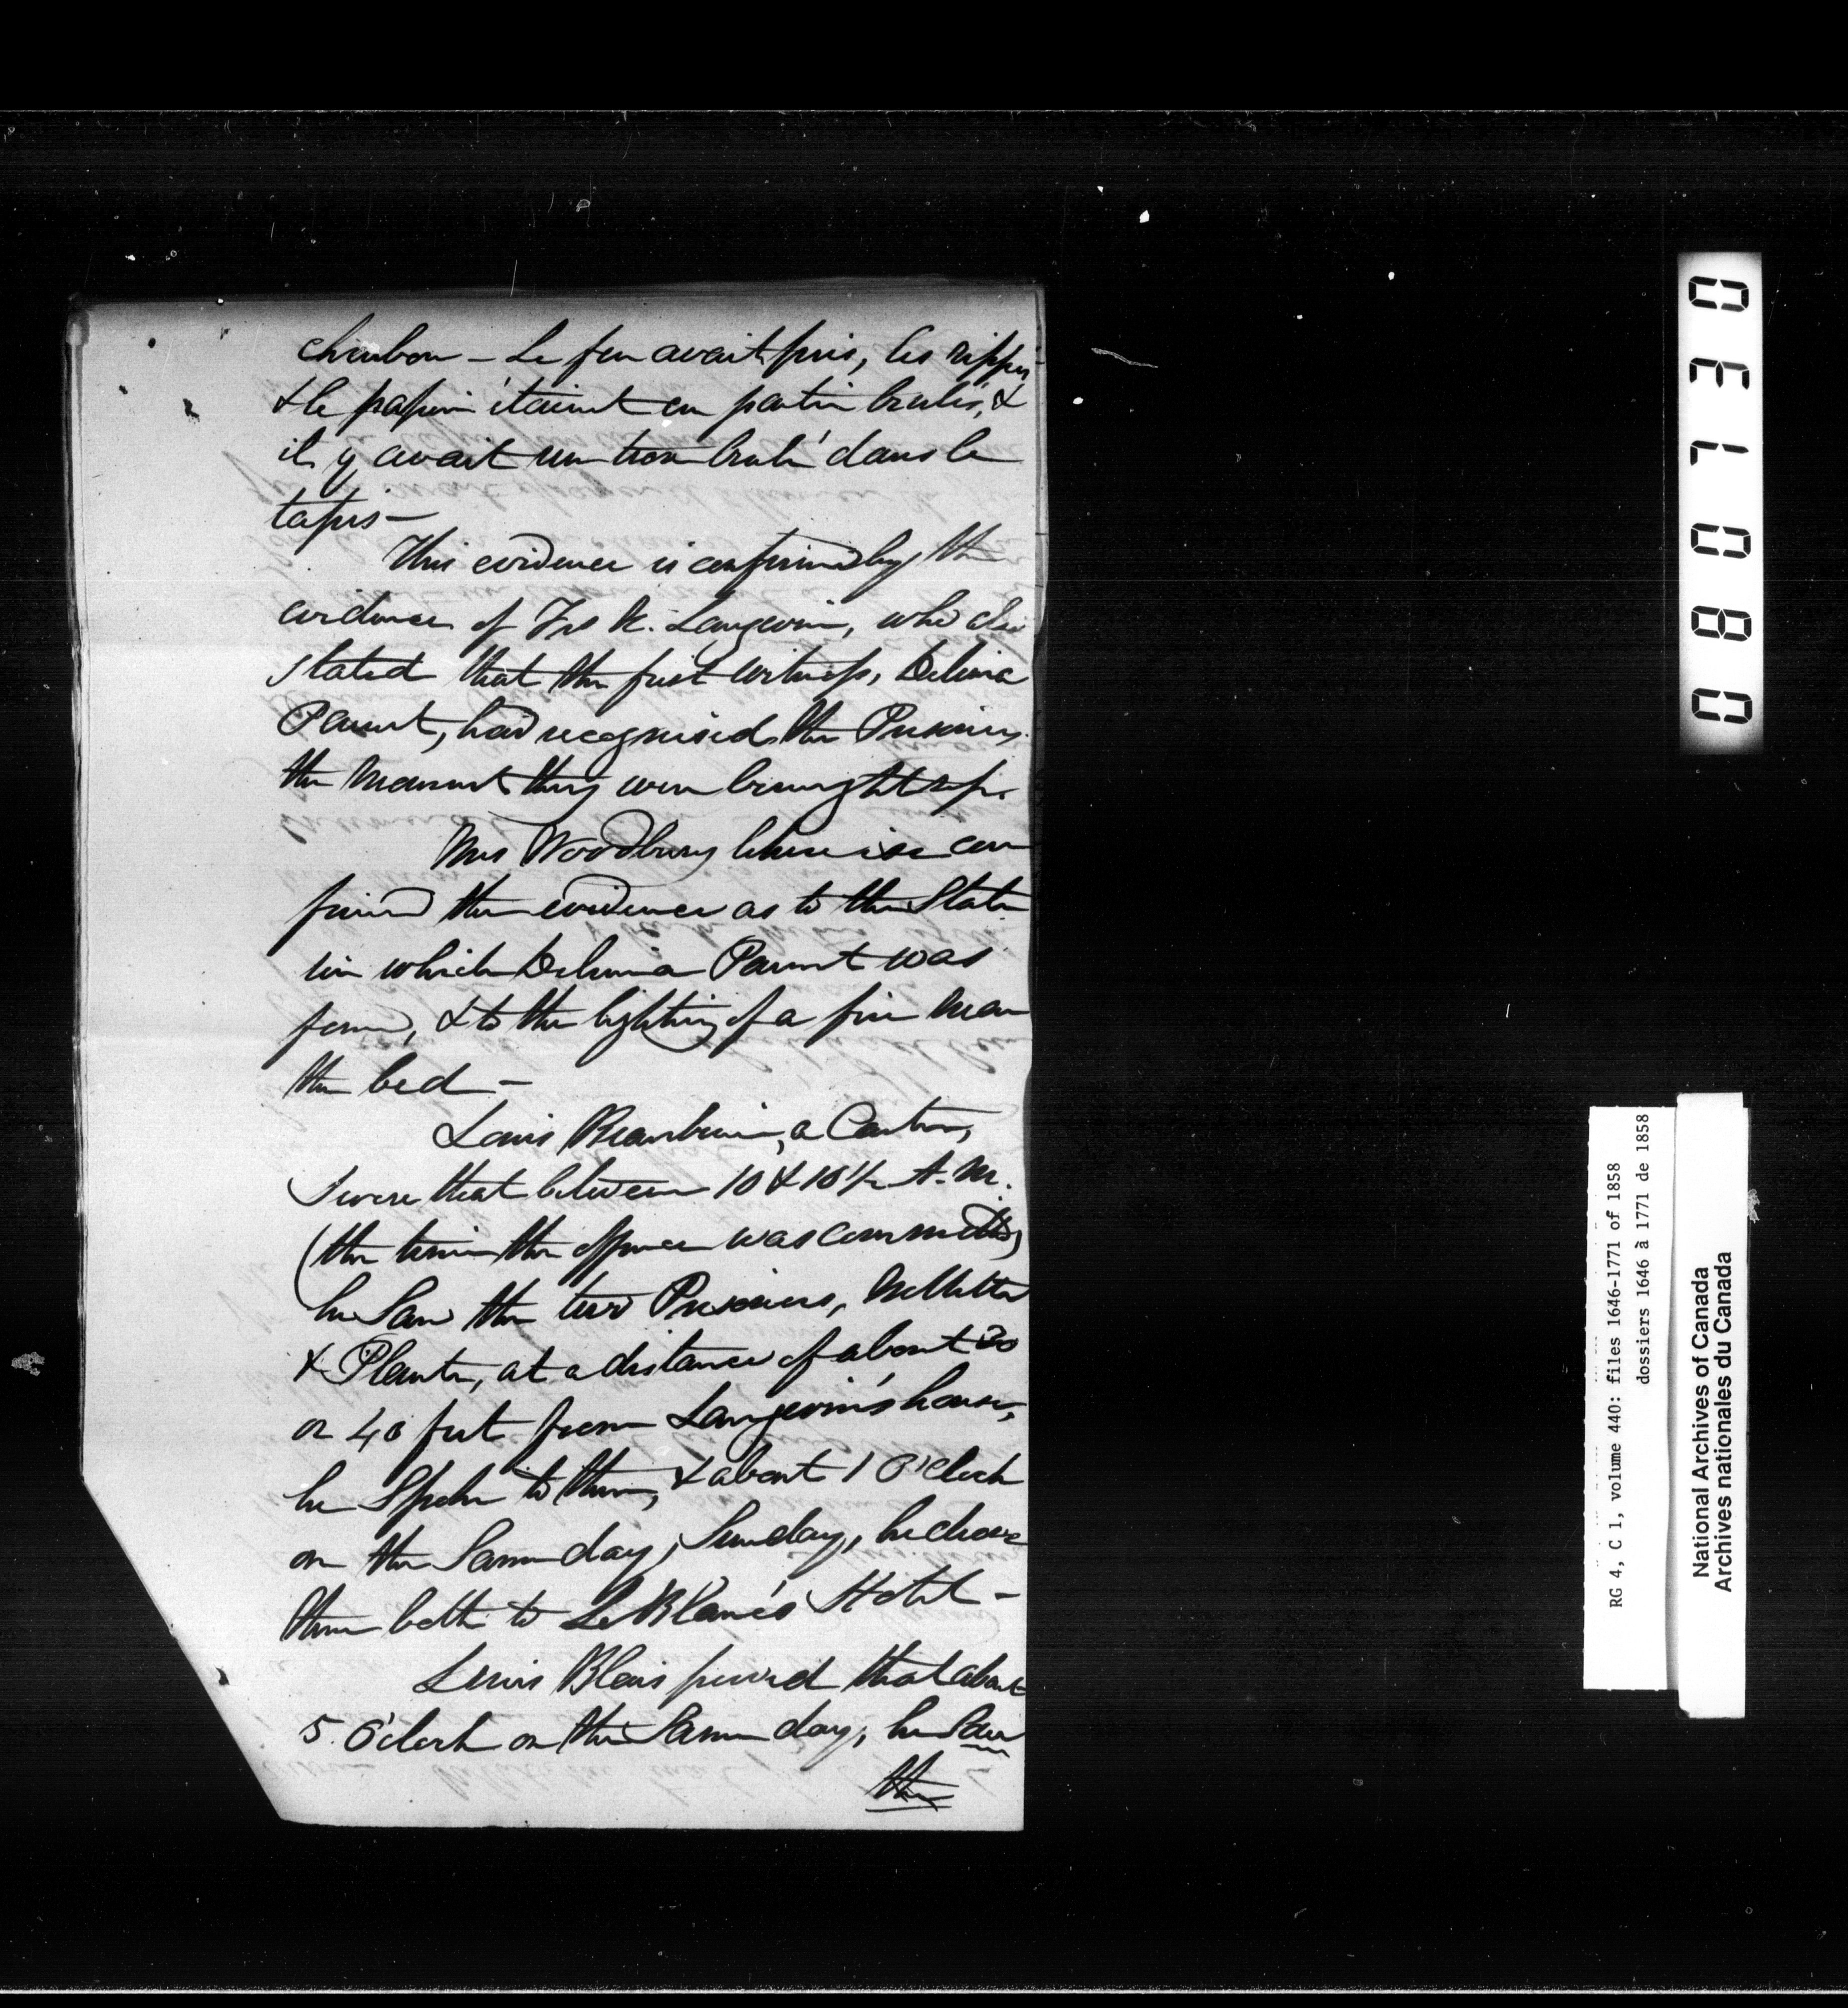 charbon – Le feu avait pris, les ripes
& le papier étaient en partie brulés, &
il y avait un trou brulé dans le
tapis –
This evidence is confirmed by the
evidence of Frs R. Langevin, who also
stated that the first witness, Delima
Parent, had recognised the Prisoners
the moment they were brought up.
Mrs Woodbury likewise con
firmed the evidence as to the State
in which Delima Parent was
found, & to the lighting of a fire near
the bed –
Louis Beaubien, a Carter,
Swore that between 10 & 10½ A.M.
(the time the offence was committed)
he Saw the two Prisoners,
& Plante, at a distance of about 30
or 40 feet from Langevin's house,
he Spoke to them, & about 1 O'clock
on the Same day, Sunday, he drove
them both to LeBlanc's Hotel –
Louis Blais proved that about
5 O'clock on the Same day, he Saw
the
0 8 0 7 3 0
RG 4, C 1, volume 440: files 1646-1771 of 1858
dossiers 1646 à 1771 de 1858
National Archives of Canada
Archives nationales du Canada